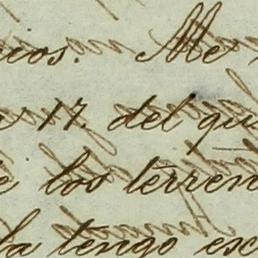 ios. Me
17 del qu
e los terren
la tengo esc